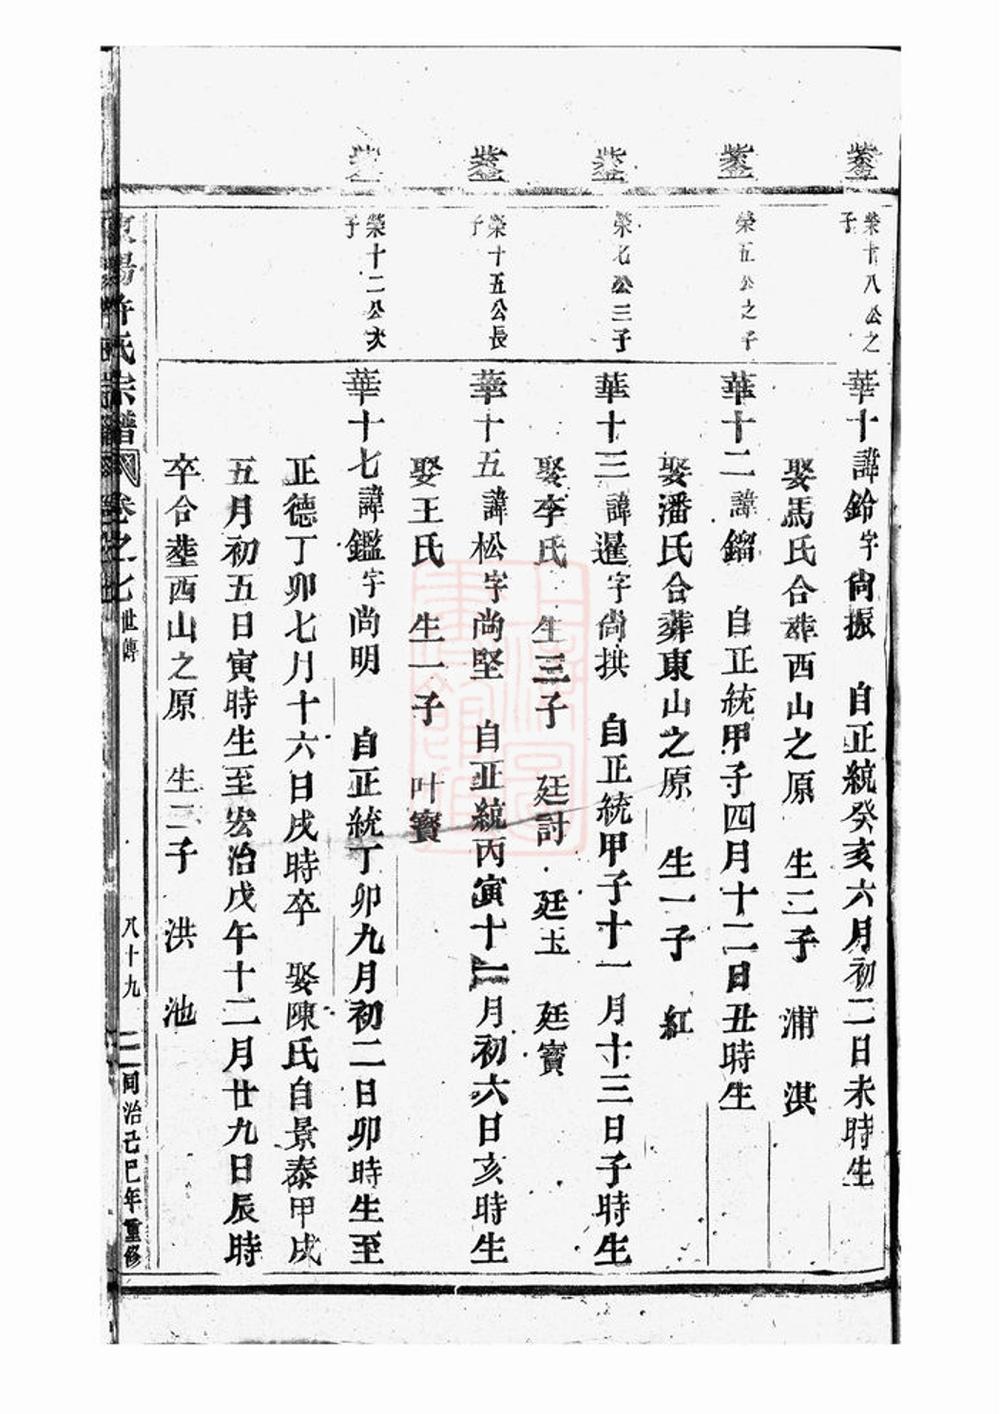 榮十八公之子
華十諱鈴字尙振　自正統癸亥六月初二日未時生
娶馬氏合葬西山之原　生二子　浦　淇
榮五公之子
華十二諱鎦　自正統甲子四月十二日丑時生
娶潘氏合葬東山之原　生一子　紅
榮七公三子
華十三諱暹字尙拱　自正統甲子十一月十三日子時生
娶李氏　生三子　廷討　廷玉　廷寶
榮十五公長子
華十五諱松字尙堅　自正統丙寅十二月初六日亥時生
娶王氏　生一子　叶寶
榮十二公次子
華十七諱鑑字尚明　自正統丁卯九月初二日卯時生至
正德丁卯七月十六日戌時卒　娶陳氏自景泰甲戌
五月初五日寅時生至宏治戊午十二月廿九日辰時
卒合塟西山之原　生二子　洪　池
東陽許氏宗譜　卷之七　世傳　八十九　同治己巳年重修